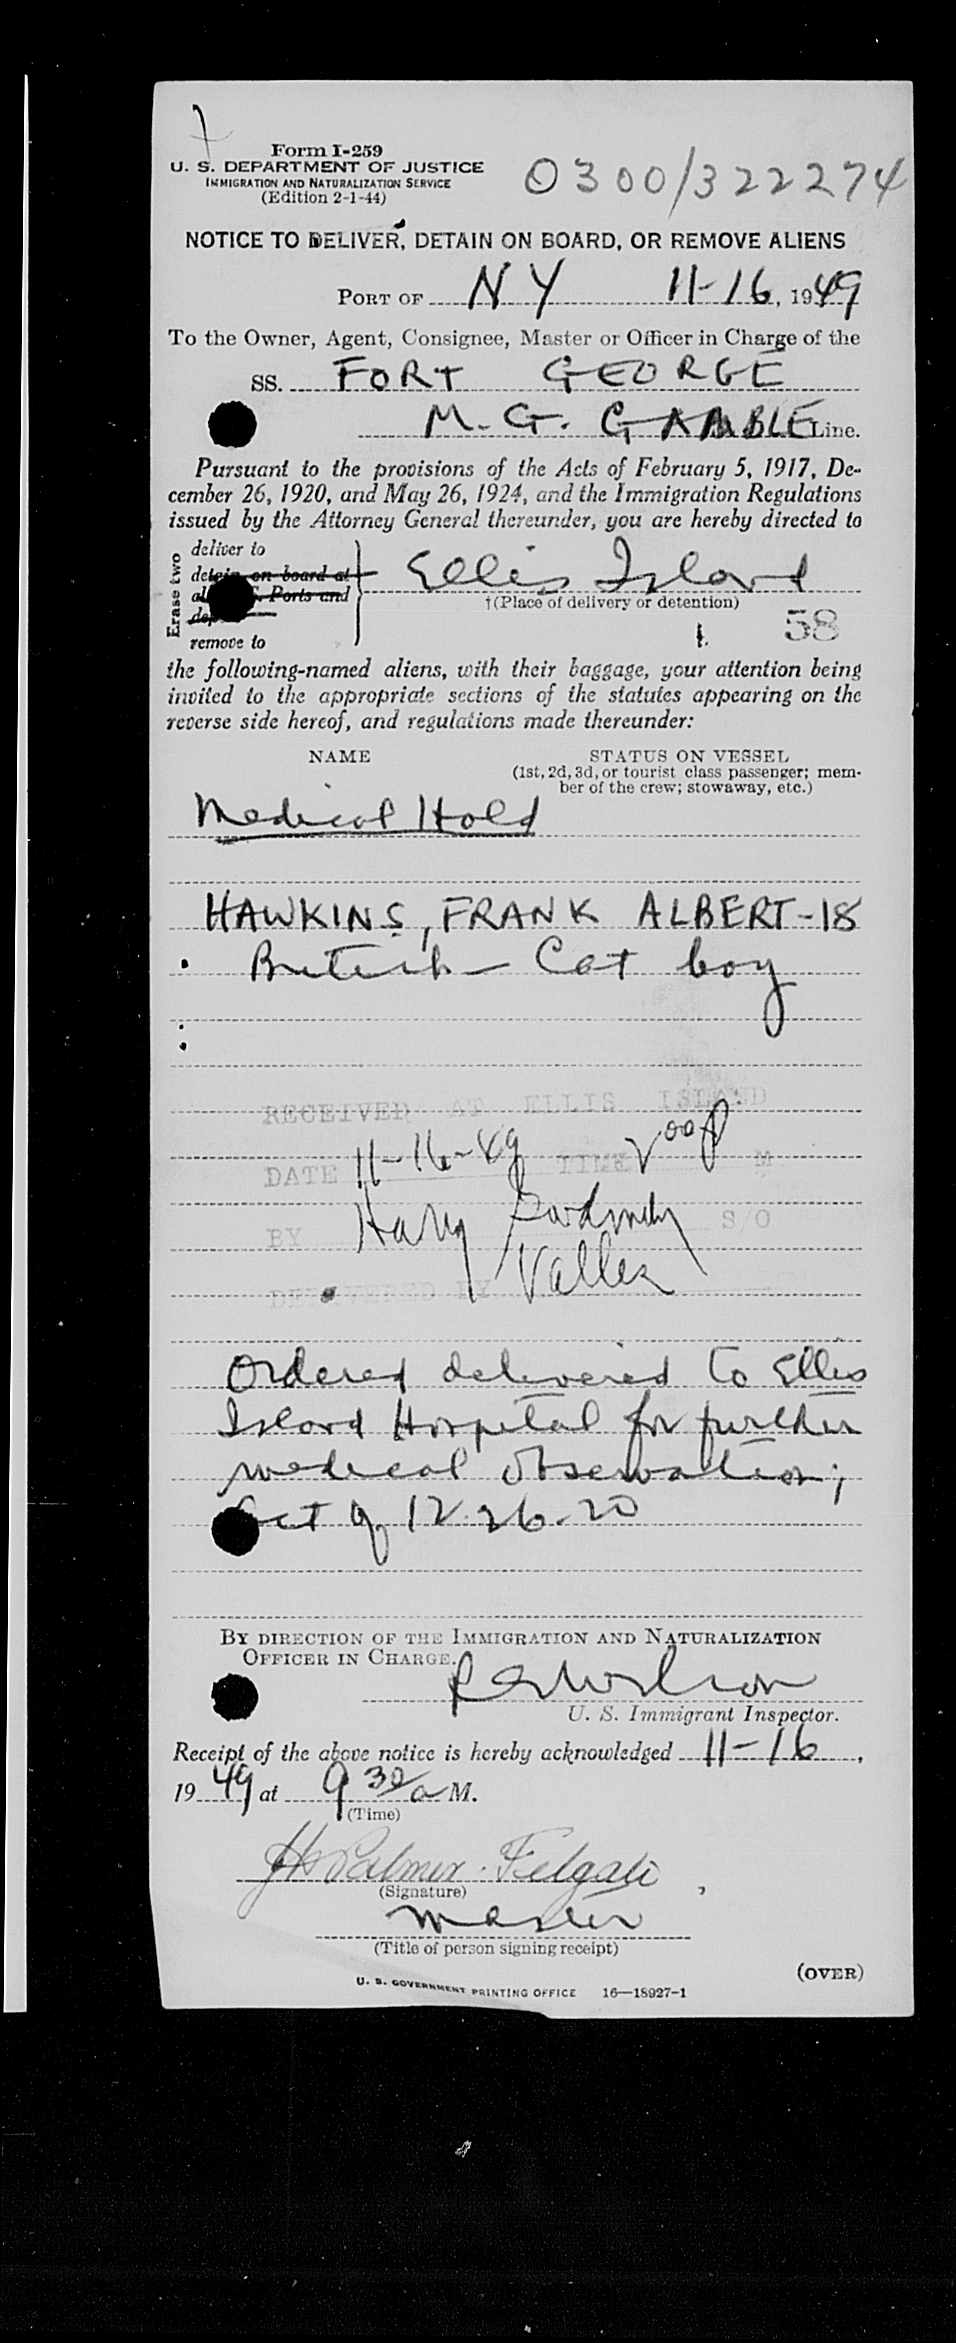 Form I-259
U. S. DEPARTMENT OF JUSTICE
IMMIGRATION AND NATURALIZATION SERVICE
(Edition 2-1-44)
0300/322274
NOTICE TO DELIVER, DETAIN ON BOARD, OR REMOVE ALIENS
PORT OF NY 11-16, 1949
To the Owner, Agent, Consignee, Master or Officer in Charge of the
SS. FORT GEORGE
M. G. GAMBLE Line.
Pursuant to the provisions of the Acts of February 5, 1917, De-
cember 26, 1920, and May 26, 1924, and the Immigration Regulations
issued by the Attorney General thereunder, you are hereby directed to
Erase two
deliver to
detain on board at
Ports and
remove to
Ellis Island
†(Place of delivery or detention)
58
the following-named aliens, with their baggage, your attention being
invited to the appropriate sections of the statutes appearing on the
reverse side hereof, and regulations made thereunder:
NAME STATUS ON VESSEL
(1st, 2d, 3d, or tourist class passenger; mem-
ber of the crew; stowaway, etc.)
Medical Hold
HAWKINS, FRANK ALBERT-18
British - Cat boy
RECEIVED AT ELLIS ISLAND
DATE 11-16-49 TIME M
BY Harry S/O
DELIVERED BY
Ordered delivered to Ellis
Island Hospital for further
medical observation;
Act of 12-26-20
BY DIRECTION OF THE IMMIGRATION AND NATURALIZATION
OFFICER IN CHARGE.
U. S. Immigrant Inspector.
Receipt of the above notice is hereby acknowledged 11-16,
1949 at 9 30 a M.
(Time)
Palmer
(Signature)
Master
(Title of person signing receipt)
(OVER)
U. S. GOVERNMENT PRINTING OFFICE 16—18927-1